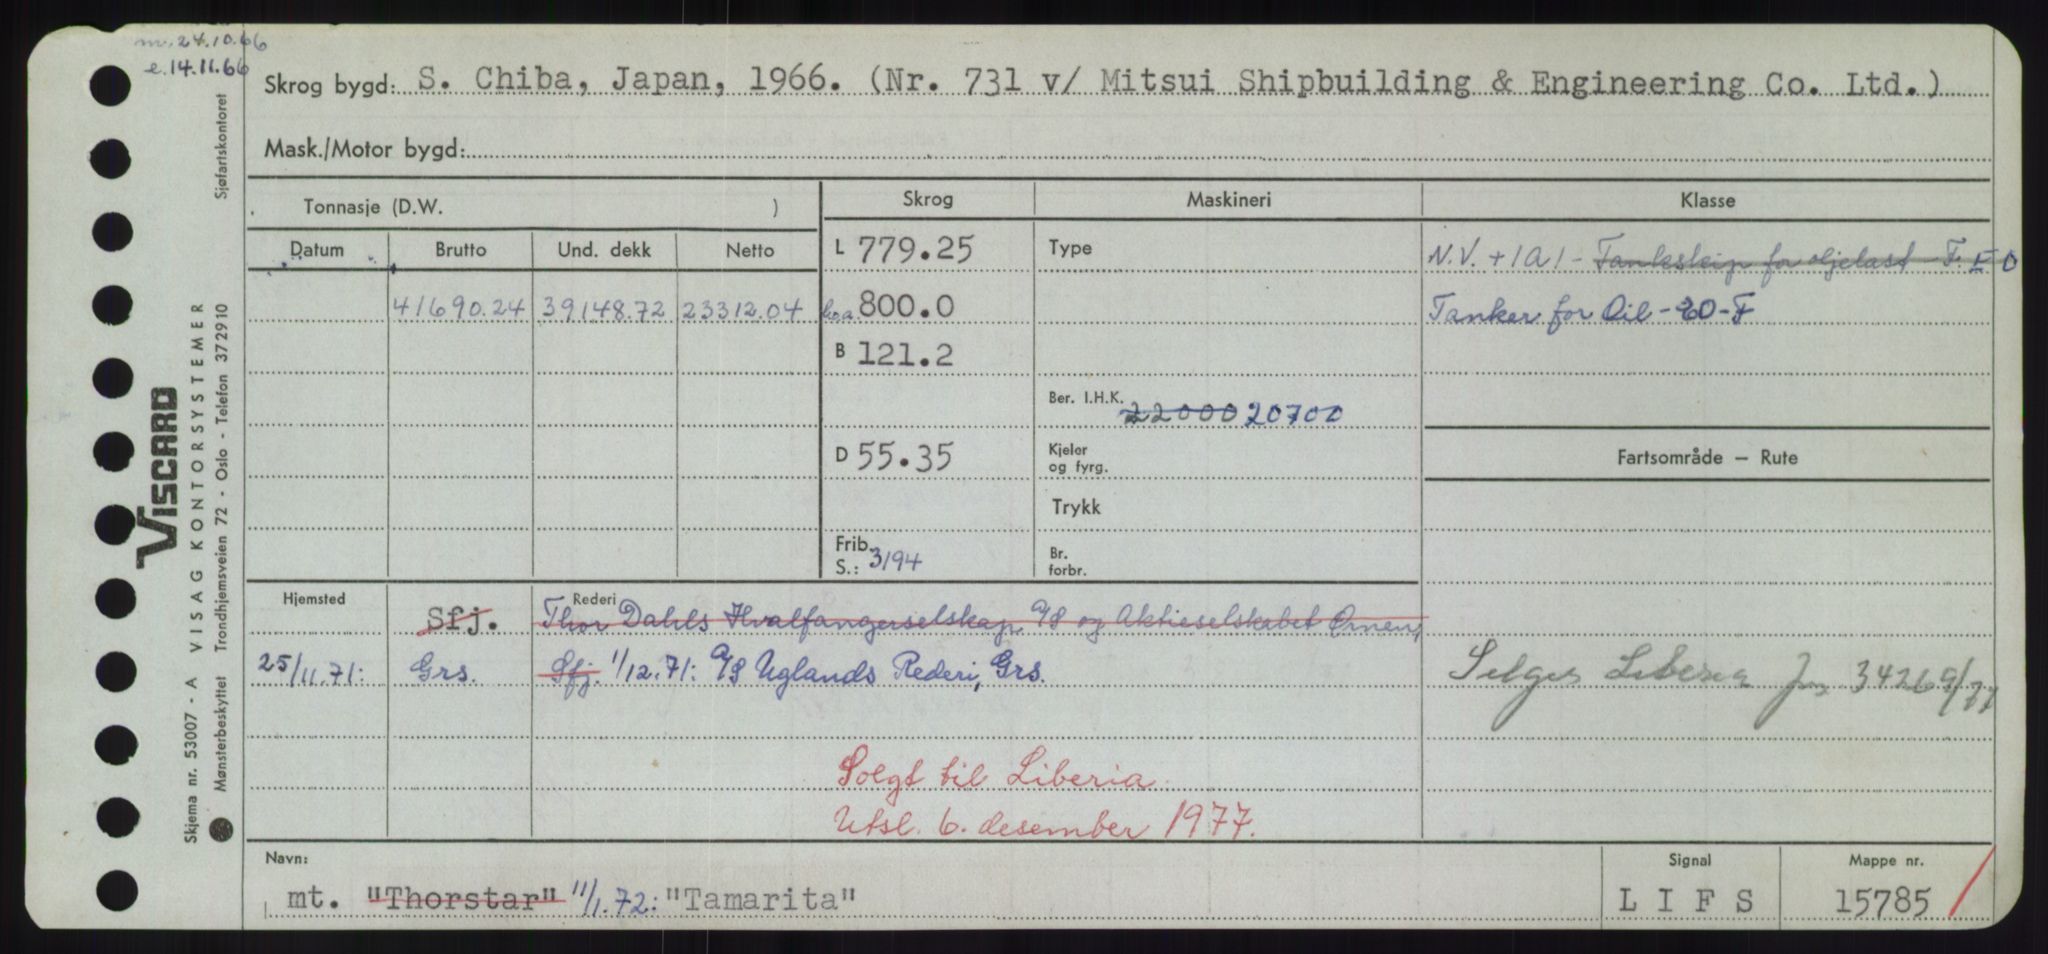 m. 24.10.66
e. 14.11.66
Skrog bygd: S. Chiba, Japan, 1966. (Nr. 731 v/ Mitsui Shipbuilding & Engineering Co. Ltd.)
Mask./Motor bygd:
Tonnasje (D.W. )
Skrog
Maskineri
Klasse
Datum Brutto Und. dekk Netto
41690.24 39148.72 23312.04
L 779.25
l.o.a. 800.0
B 121.2
D 55.35
Frib.
S.: 3194
Type
Ber. I.H.K. 22000 20700
Kjeler
og fyrg.
Trykk
Br.
forbr.
N.V. + 1A1 - Tankskip for oljelast - F. E 0
Tanker for Oil - EO - F
Fartsområde — Rute
Selges Liberia 3426 9/77
Hjemsted
Rederi
Sfj. Thor Dahls Hvalfangerselskap A/S og Aktieselskabet Ørnen,
25/11.71: Grs. Sfj. 1/12.71: A/S Uglands Rederi, Grs.
Solgt til Liberia
Utsl. 6. desember 1977.
Navn:
mt. "Thorstar" 11/1.72: "Tamarita"
Signal
L I F S
Mappe nr.
15785
VISCARD
Skjema nr. 53007 - A VISAG KONTORSYSTEMER
Mønsterbeskyttet Trondhjemsveien 72 - Oslo - Telefon 372910
Sjøfartskontoret